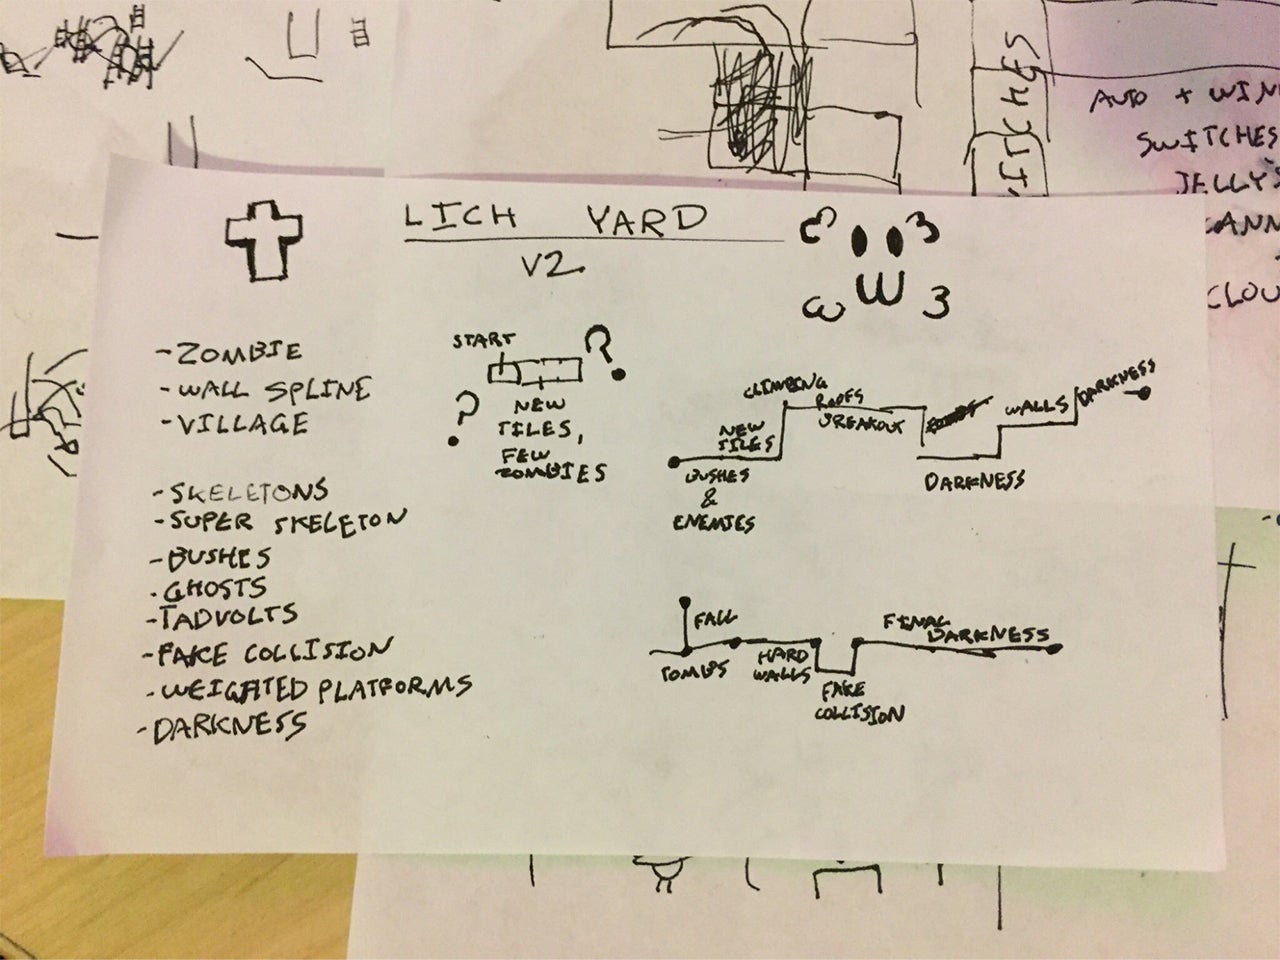 LICH YARD
V2
-ZOMBIE
-WALL SPLINE
-VILLAGE
-SKELETONS
-SUPER SKELETON
-BUSHES
-GHOSTS
-TADVOLTS
-FAKE COLLISION
-WEIGHTED PLATFORMS
-DARKNESS
START
?
?
NEW
TILES,
FEW
ZOMBIES
CLIMBING
ROOFS
BREAKOUT
NEW
TILES
BUSHES
&
ENEMIES
WALLS
DARKNESS
DARKNESS
FALL
TOMBS
HARD
WALLS
FAKE
COLLISION
FINAL
DARKNESS
AUTO + WIN
SWITCHES
JELLY'S
CLOU